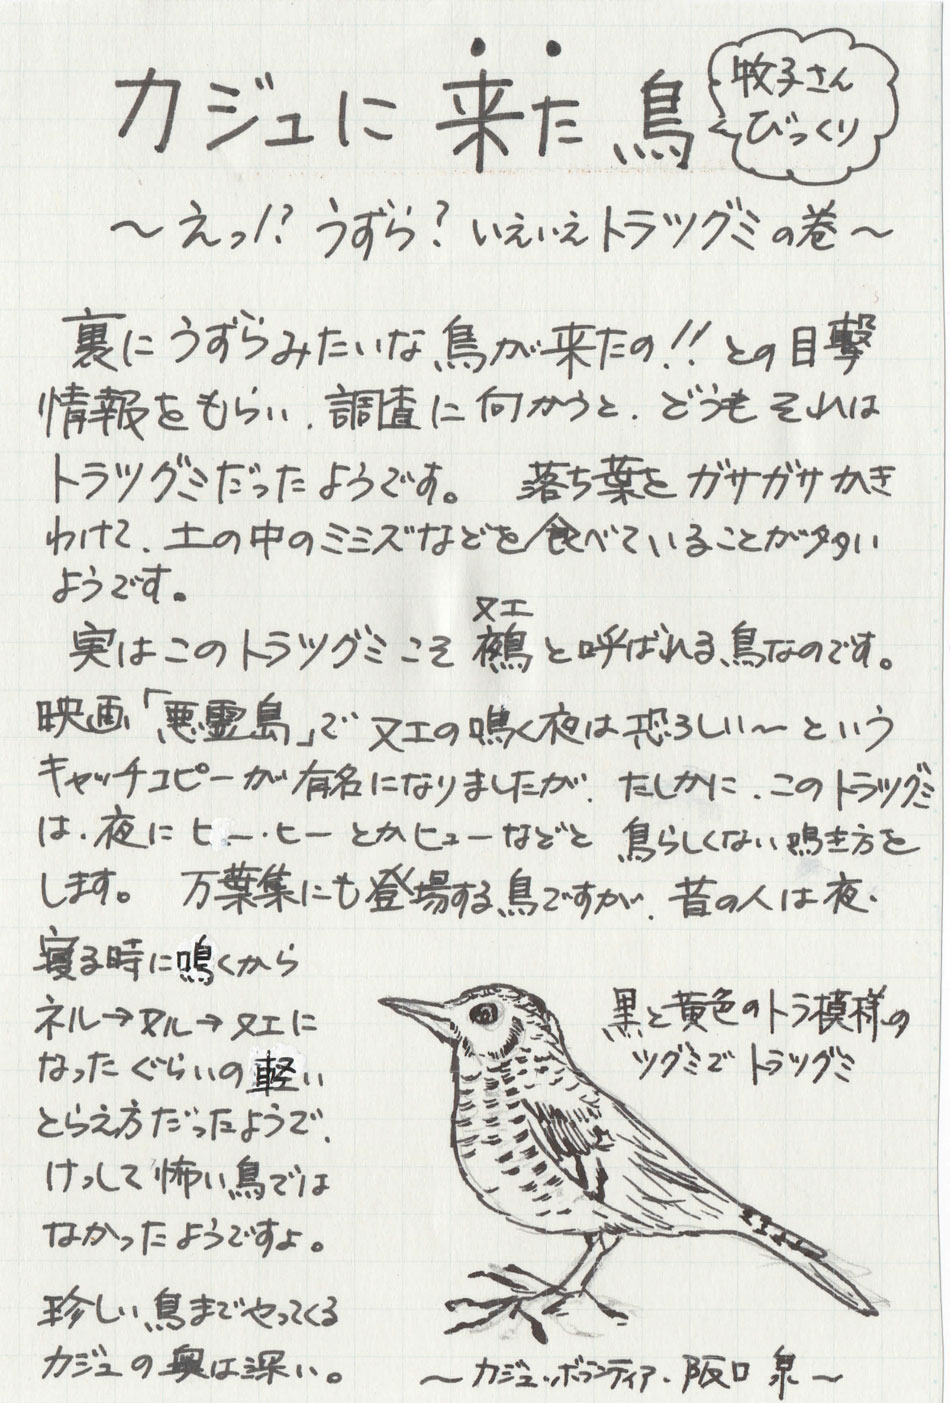 カジュに来た鳥
牧子さん
びっくり
～えっ!? うずら? いえいえトラツグミの巻～
裏にうずらみたいな鳥が来たの!! との目撃
情報をもらい、調査に向かうと、どうもそれは
トラツグミだったようです。 落ち葉をガサガサかき
わけて、土の中のミミズなどを食べていることが多い
ようです。
ヌエ
実はこのトラツグミこそ鵺と呼ばれる鳥なのです。
映画「悪霊島」でヌエの鳴く夜は恐ろしい～という
キャッチコピーが有名になりましたが、たしかに、このトラツグミ
は、夜にヒー・ヒーとかヒューなどと鳥らしくない鳴き方を
します。 万葉集にも登場する鳥ですが、昔の人は夜、
寝る時に鳴くから
ネル→ヌル→ヌエに
なったぐらいの軽い
とらえ方だったようで、
けっして怖い鳥では
なかったようですよ。
珍しい鳥までやってくる
カジュの奥は深い。
黒と黄色のトラ模様の
ツグミでトラツグミ
～カジュ・ボランティア・阪口 泉～